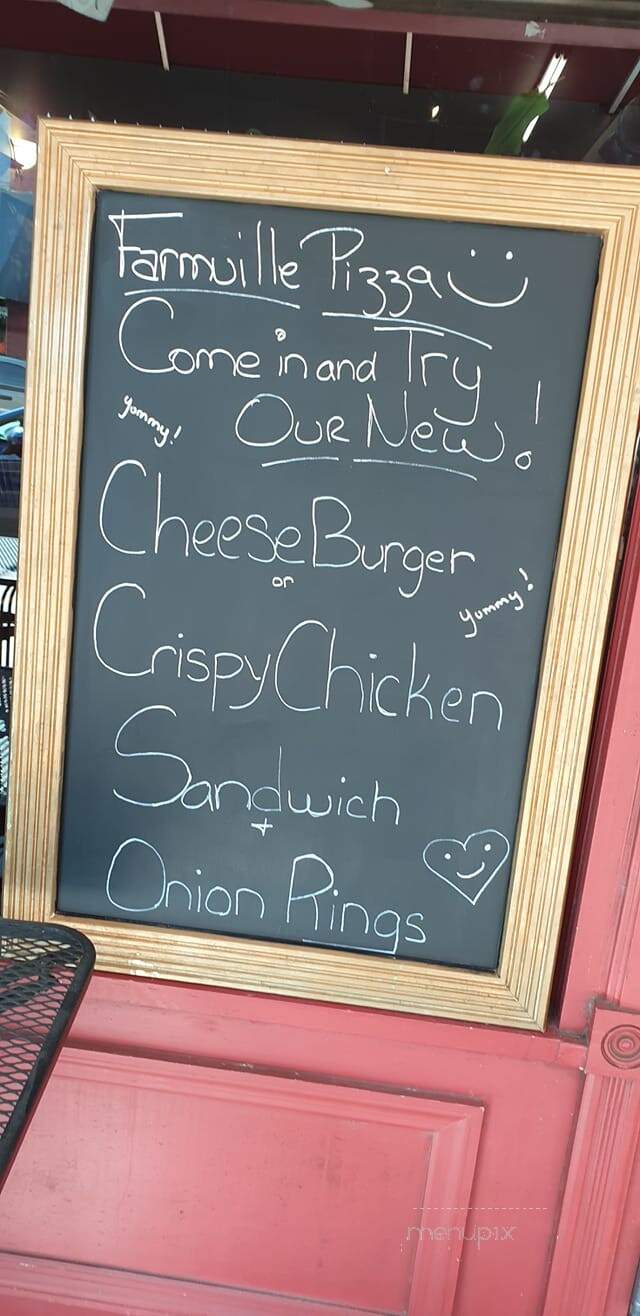 Farmville Pizza
Come in and Try
Yummy! Our New!
CheeseBurger
or
Yummy!
Crispy Chicken
Sandwich
+
Onion Rings
menupix